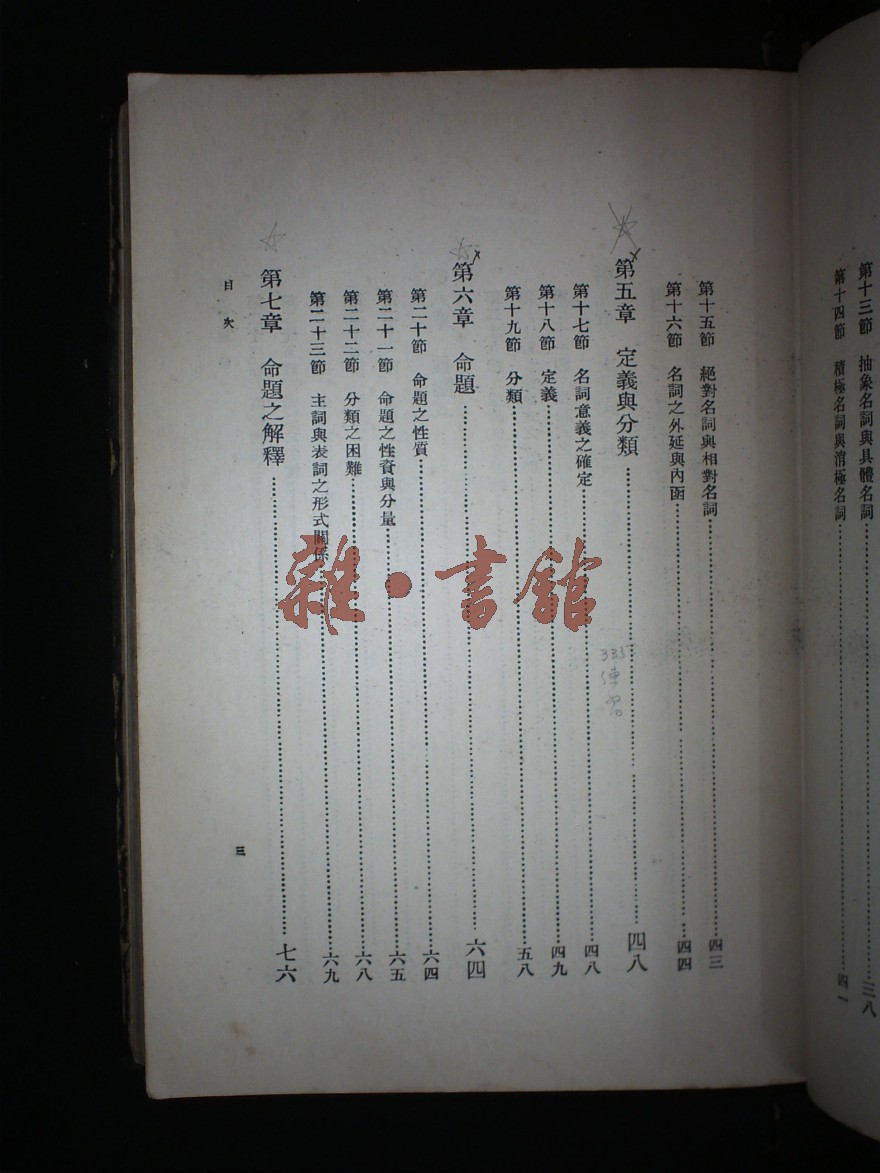 第十三節 抽象名詞與具體名詞……三八
第十四節 積極名詞與消極名詞……四一
第十五節 絕對名詞與相對名詞……四三
第十六節 名詞之外延與內函……四四
第五章 定義與分類……四八
第十七節 名詞意義之確定……四八
第十八節 定義……四九
第十九節 分類……五八
第六章 命題……六四
第二十節 命題之性質……六四
第二十一節 命題之性資與分量……六五
第二十二節 分類之困難……六八
第二十三節 主詞與表詞之形式關係……六九
第七章 命題之解釋……七六
目次
三
335
練習
雜·書館